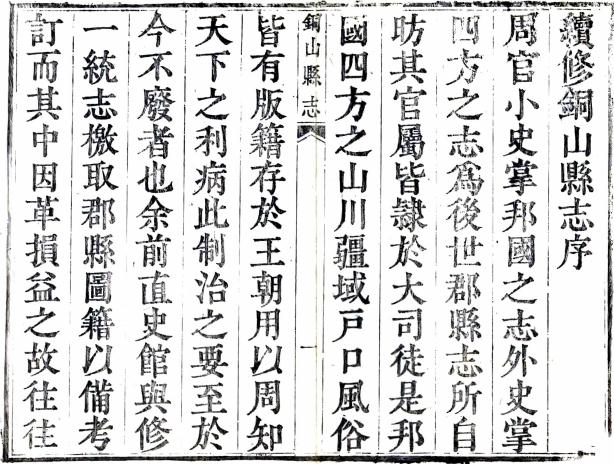 續修銅山縣志序
周官小史掌邦國之志外史掌
四方之志為後世郡縣志所自
昉其官屬皆隸於大司徒是邦
國四方之山川疆域戸口風俗
銅山縣志
一
皆有版籍存於王朝用以周知
天下之利病此制治之要至於
今不廢者也余前直史館與修
一統志檄取郡縣圖籍以備考
訂而其中因革損益之故往往